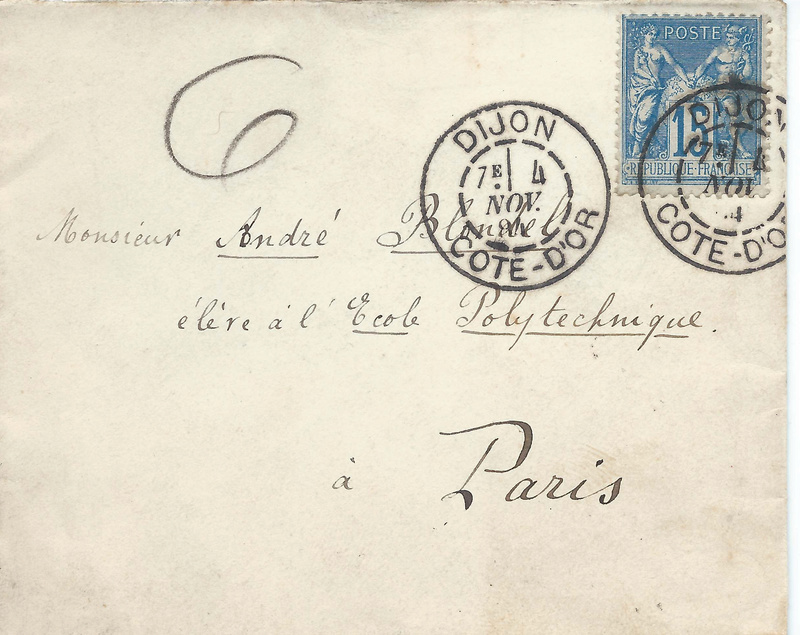 POSTE
15
REPUBLIQUE FRANÇAISE
DIJON
7E 4
NOV.
COTE-D'OR
DIJON
7E 4
NOV
4
COTE-D'O
6
Monsieur André Blondel
élève à l'Ecole Polytechnique.
à Paris